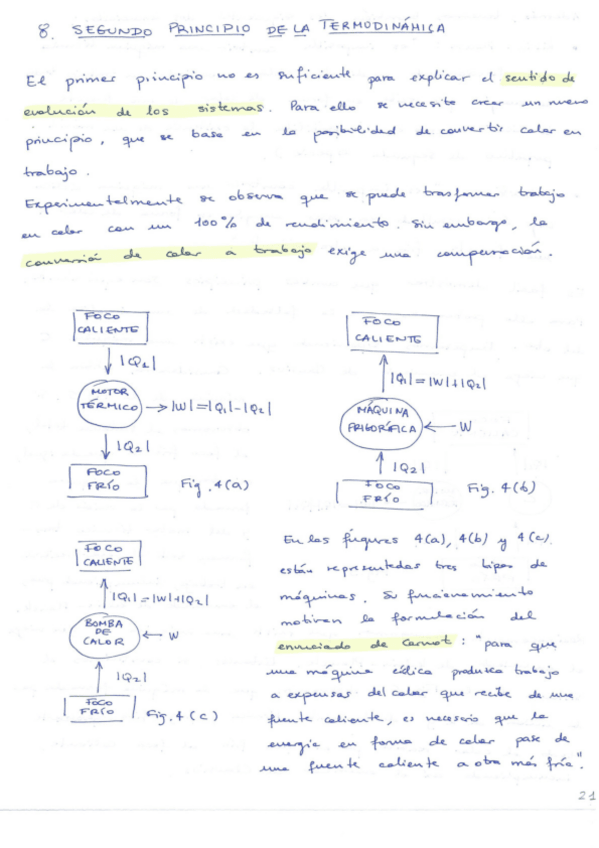 8. SEGUNDO PRINCIPIO DE LA TERMODINÁMICA
El primer principio no es suficiente para explicar el sentido de
evolución de los sistemas. Para ello se necesita crear un nuevo
principio, que se base en la posibilidad de convertir calor en
trabajo.
Experimentalmente se observa que se puede trasformar trabajo
en calor con un 100% de rendimiento. Sin embargo, la
conversión de calor a trabajo exige una compensación.
FOCO
CALIENTE
↓ |Q1|
MOTOR
TÉRMICO → |W|=|Q1|-|Q2|
↓ |Q2|
FOCO
FRÍO
Fig. 4(a)
FOCO
CALIENTE
↑ |Q1|=|W|+|Q2|
MÁQUINA
FRIGORÍFICA ← W
↑ |Q2|
FOCO
FRÍO
Fig. 4(b)
FOCO
CALIENTE
↑ |Q1|=|W|+|Q2|
BOMBA
DE
CALOR ← W
↑ |Q2|
FOCO
FRÍO
Fig. 4(c)
En las figuras 4(a), 4(b) y 4(c)
están representadas tres tipos de
máquinas. Su funcionamiento
motivan la formulación del
enunciado de Carnot: "para que
una máquina cíclica produzca trabajo
a expensas del calor que recibe de una
fuente caliente, es necesario que la
energía en forma de calor pase de
una fuente caliente a otra más fría".
21